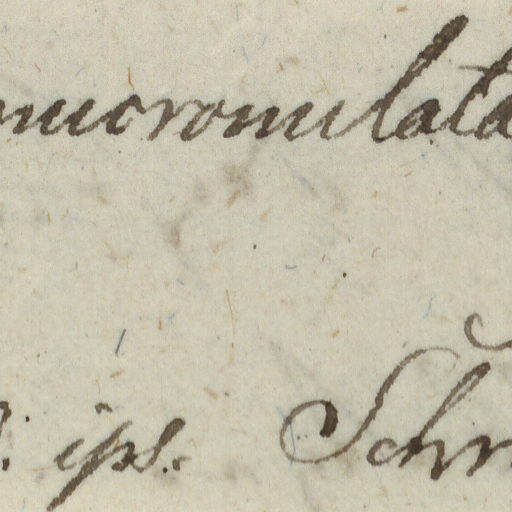 mucronulata
ips. Schr